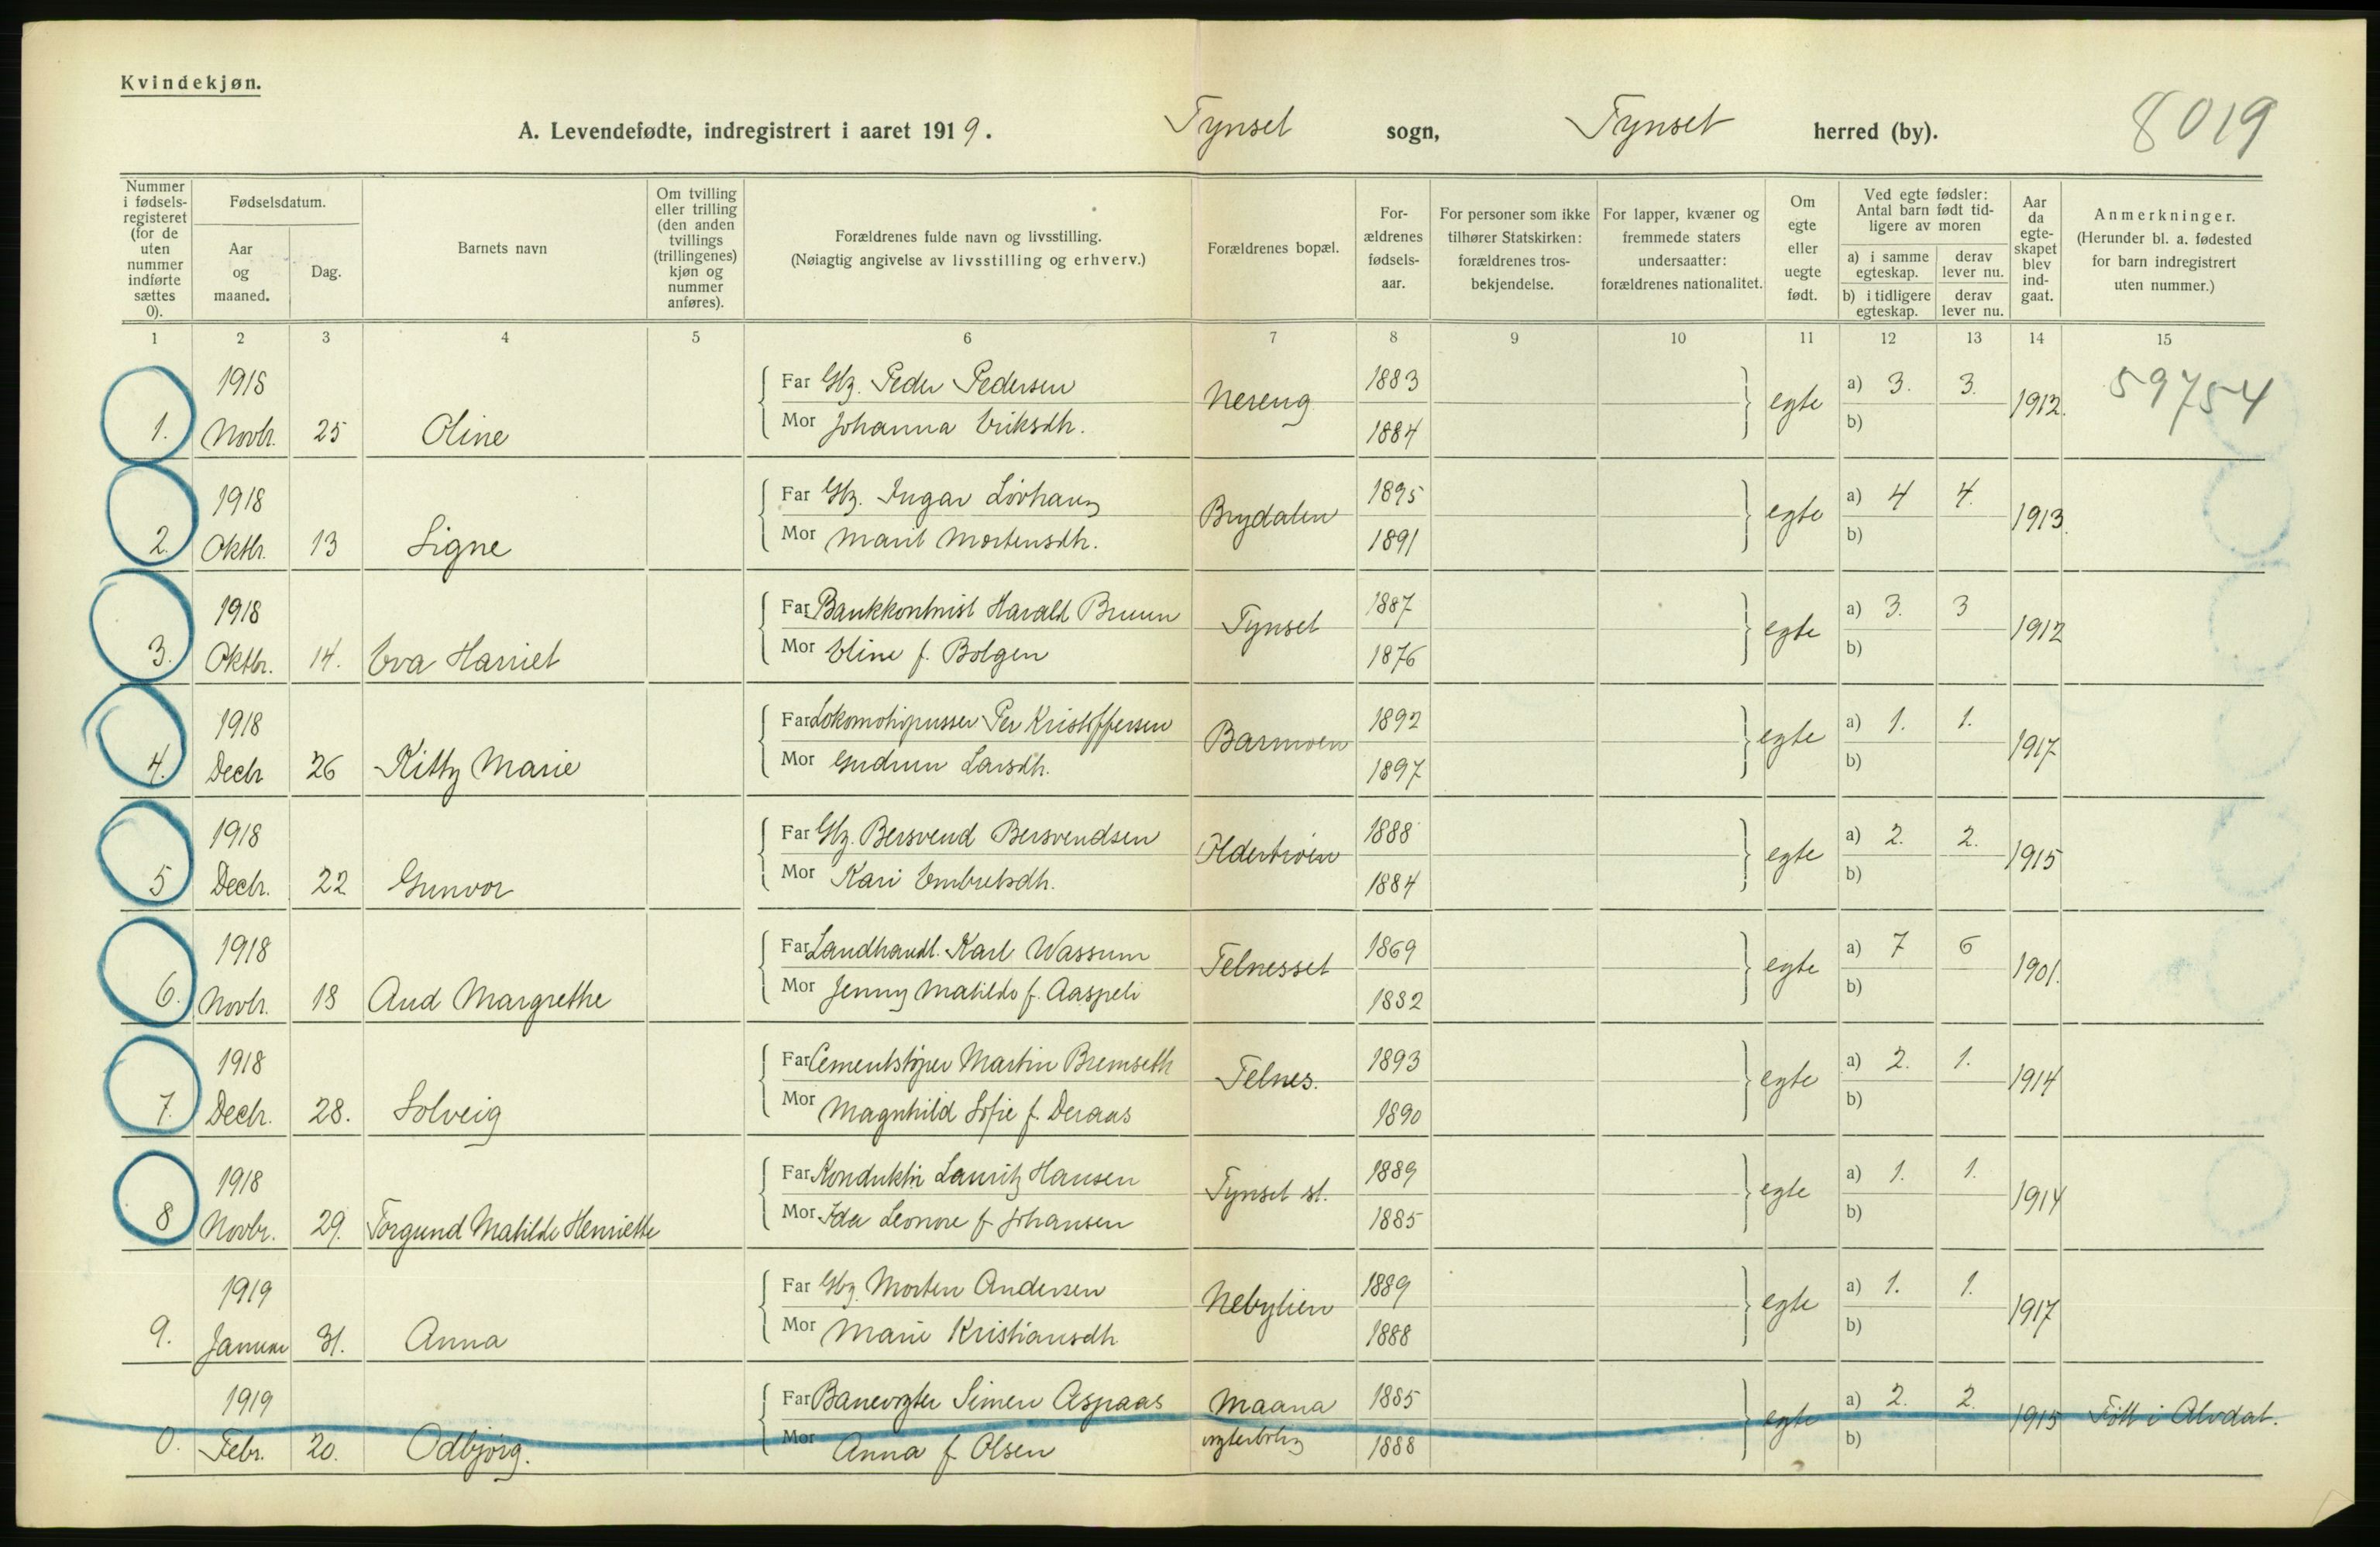 Kvindekjøn.
A. Levendefødte, indregistrert i aaret 1919. Tynset sogn, Tynset herred (by). 8019
Nummer i fødsels-registeret (for de uten nummer indførte sættes 0).
Fødselsdatum.
Aar og maaned.
Dag.
Barnets navn
Om tvilling eller trilling (den anden tvillings (trillingenes) kjøn og nummer anføres).
Forældrenes fulde navn og livsstilling.
(Nøiagtig angivelse av livsstilling og erhverv.)
Forældrenes bopæl.
For-ældrenes fødsels-aar.
For personer som ikke tilhører Statskirken: forældrenes tros-bekjendelse.
For lapper, kvæner og fremmede staters undersaatter: forældrenes nationalitet.
Om egte eller uegte født.
Ved egte fødsler: Antal barn født tid-ligere av moren
a) i samme egteskap.
derav lever nu.
b) i tidligere egteskap.
derav lever nu.
Aar da egte-skapet blev ind-gaat.
Anmerkninger.
(Herunder bl. a. fødested for barn indregistrert uten nummer.)
1 2 3 4 5 6 7 8 9 10 11 12 13 14 15
1918 Far Gbr. Peder Pedersen Nereng 1883 egte a) 3. 3. 1912. 59754
1. Novbr. 25 Oline Mor Johanna Eriksdh. 1884 b)
1918 Far Gbr. Ingar Lövhaug Brydalen 1895 egte a) 4 4. 1913.
2. Oktbr. 13 Signe Mor Marit Mortensdh. 1891 b)
1918 Far Bankkontorist Harald Bruun Tynset 1887 egte a) 3. 3 1912
3. Oktbr. 14. Eva Harriet Mor Eline f. Bolgen 1876 b)
1918 Far Lokomotivpusser Per Kristoffersen Barmoen 1892 egte a) 1. 1. 1917
4. Decbr 26 Kitty Marie Mor Gudrun Larsdh. 1897 b)
1918 Far Gbr. Bersvend Bersvendsen 1888 egte a) 2. 2. 1915
5 Decbr. 22 Gunvor Mor Kari Embretsdh. 1884 b)
1918 Far Landhandl. Karl Wassum Telnesset 1869 egte a) 7 6 1901.
6. Novbr. 18 Aud Margrethe Mor Jenny Matilde f. Aaspeli 1882 b)
1918 Far Cementstöper Martin Bremseth Telnes. 1893 egte a) 2. 1. 1914
7. Decbr. 28. Solveig Mor Magnhild Sofie f. Deraas 1890 b)
1918 Far Konduktör Lauritz Hansen Tynset st. 1889 egte a) 1. 1. 1914
8 Novbr. 29. Torgund Matilde Henriette Mor Ida Leonore f. Johansen 1885 b)
1919 Far Gbr. Morten Andersen Nebylien 1889 egte a) 1. 1. 1917
9. Januar 31. Anna Mor Marie Kristiansdh 1888 b)
1919 Far Banevogter Simen Aspaas Maana 1885 egte a) 2. 2. 1915 Född i Alvdal.
0. Febr. 20. Odbjörg. Mor Anna f. Olsen vogterbolig 1888 b)